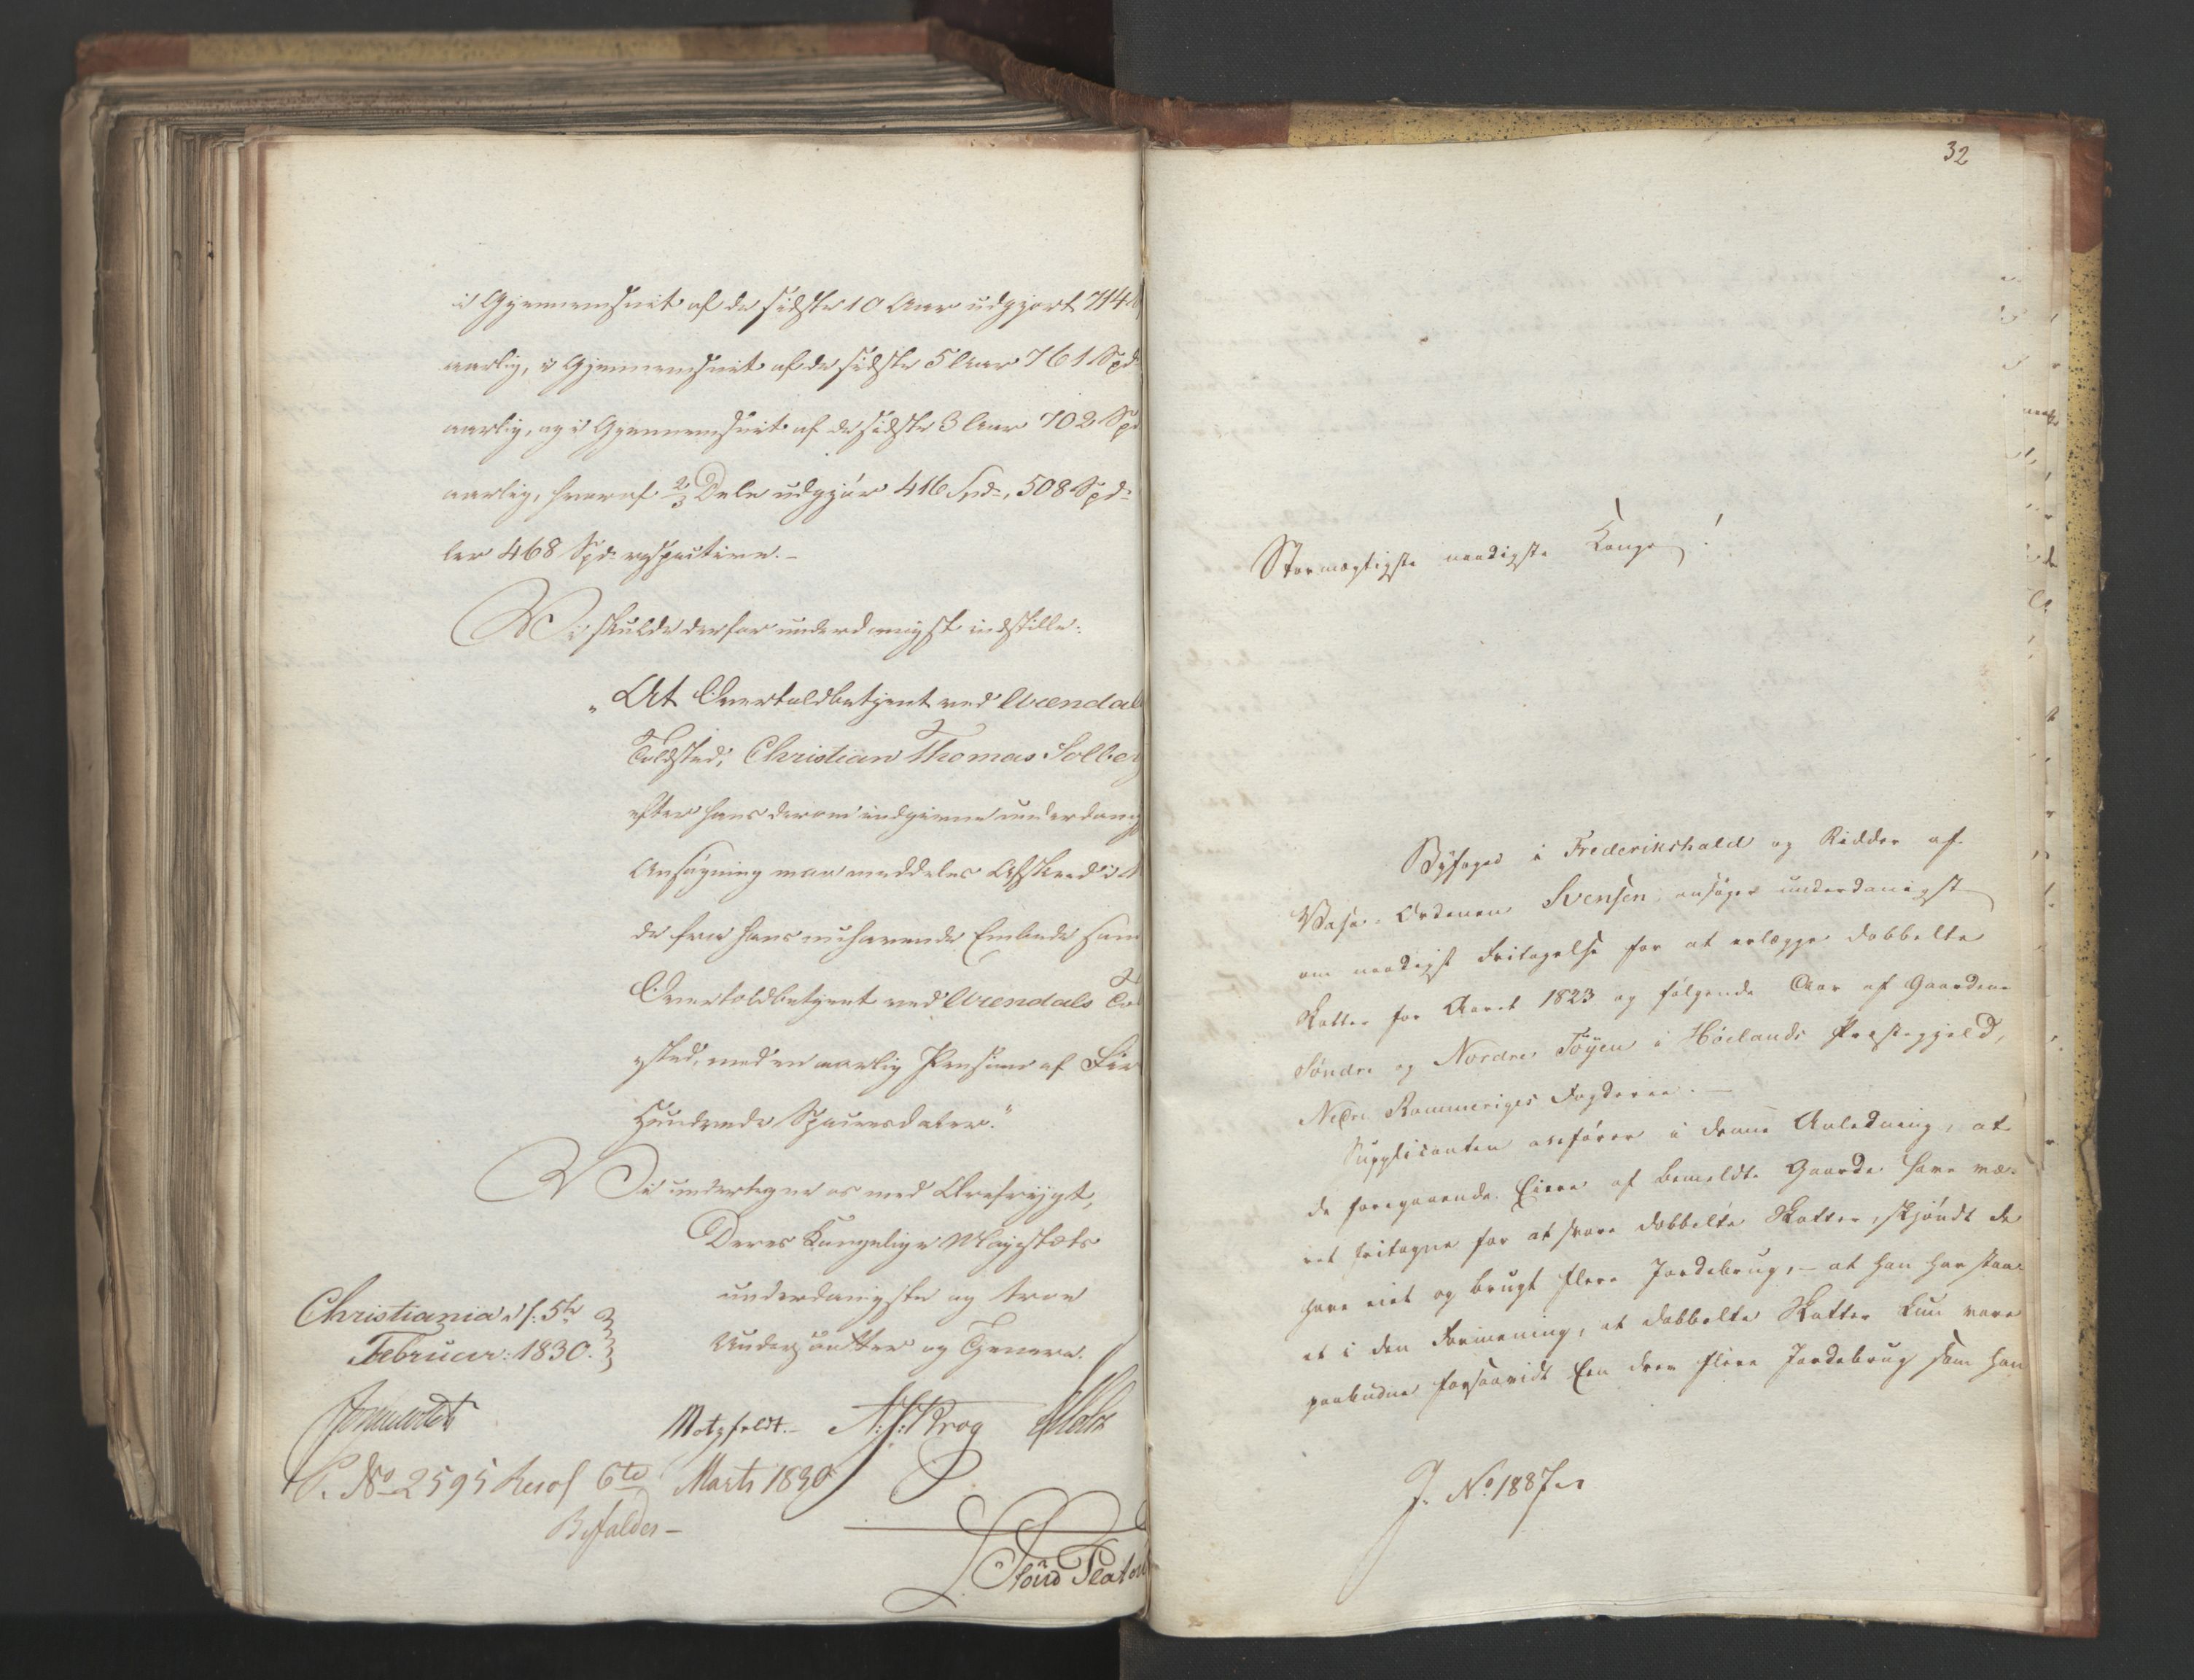 i Gjennemsnit af de sidste 10 Aar udgjort 714
aarlig, i Gjennemsnit af de sidste 5 Aar 761 Spd
aarlig, og i Gjennemsnit af de sidste 3 Aar 702 Sp
aarlig, hvoraf 2/3 Dele udgjør 416 Spd, 508 Spd
ler 468 Spd respective.-
Vi skulde derfor underdanigst indstille:
„At Overtoldbetjent ved Arendal
Toldsted, Christian Thomas Solber
efter hans derom indgivne underdanig
Ansøgning maa meddeles Afsked i
de fra hans nuhavende Embede som
Overtoldbetjent ved Arendals To
sted, med en aarlig Pension af Fir
Hundrede Speciesdaler."
Vi undertegne os med Ærefrygt,
Deres Kongelige Majestæts
underdanigste og troe
Undersaatter og Tjenere.
Christiania d: 5te
Februar: 1830.
Motzfeldt.- Krog
No 2595 Resol 6te Marts 1830
Bifaldes -
32
Stormægtigste naadigste Konge!
Byfoged i Frederikshald og Ridder af
Vasa-Ordenen Svensen, ansøger underdanigst
om naadigst Fritagelse for at erlægge dobbelte
Skatter for Aaret 1823 og følgende Aar af Gaardene
Søndre og Nordre Töyen i Höelands Præstegjeld,
Nedre Rommeriges Fogderie.-
Supplicanten anfører i denne Anledning, at
de foregaaende Eiere af bemeldte Gaarde have væ-
ret fritagne for at svare dobbelte Skatter, skjøndt de
have eiet og brugt flere Jordebrug, - at han har staa-
et i den Formening, at dobbelte Skatter kun vare
paabudne forsaavidt Een drev flere Jordebrug som han
J. No 1887